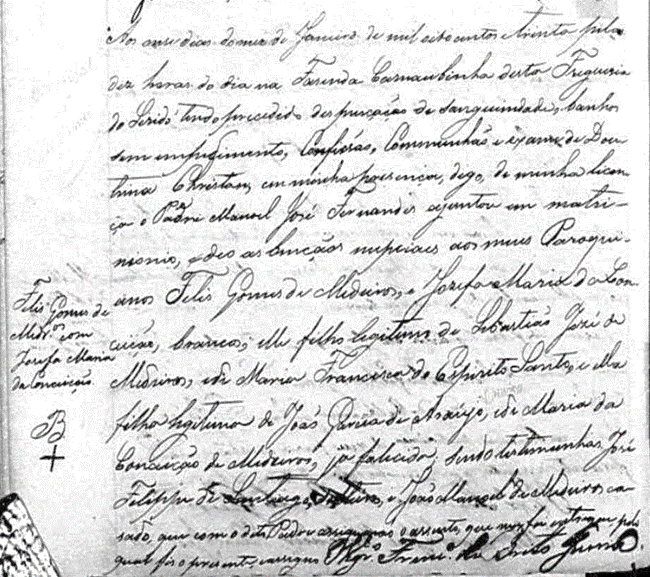 Aos onse dias do mez de Janeiro de mil oito centos e trinta pelas
dez horas do dia na Fazenda Carnaubinha desta Freguezia
do Seridó tendo precedido despensação de sanguinidade, banhos
sem impedimento, Confissão, Communhão e exame de Dou-
trina Christam, em minha presença, digo, de minha licen-
ça o Padre Manoel José Fernandes ajuntou em matri-
monio, e deo as bençãos nupciaes aos meus Paroqui-
anos Felis Gomes de Medeiros, e Jozefa Maria da Con-
ceição, brancos; elle filho legitimo de Sebastião José de
Medeiros, e de Maria Francisca do Espirito Santo, e ella
filha legitima de João Garcia de Araujo, e de Maria da
Conceição de Medeiros, já falecida: sendo testemunhas José
Filippe de Santiago, e João Manoel de Medeiros ca-
sado, que com o dito Padre assignarão o assento, que me foi entregue pelo
qual fiz o presente, e assigno. Vigr.º Franc.º de Brito Guerra.
Felis Gomes de
Medr.os com
Jozefa Maria
da Conceição.
B